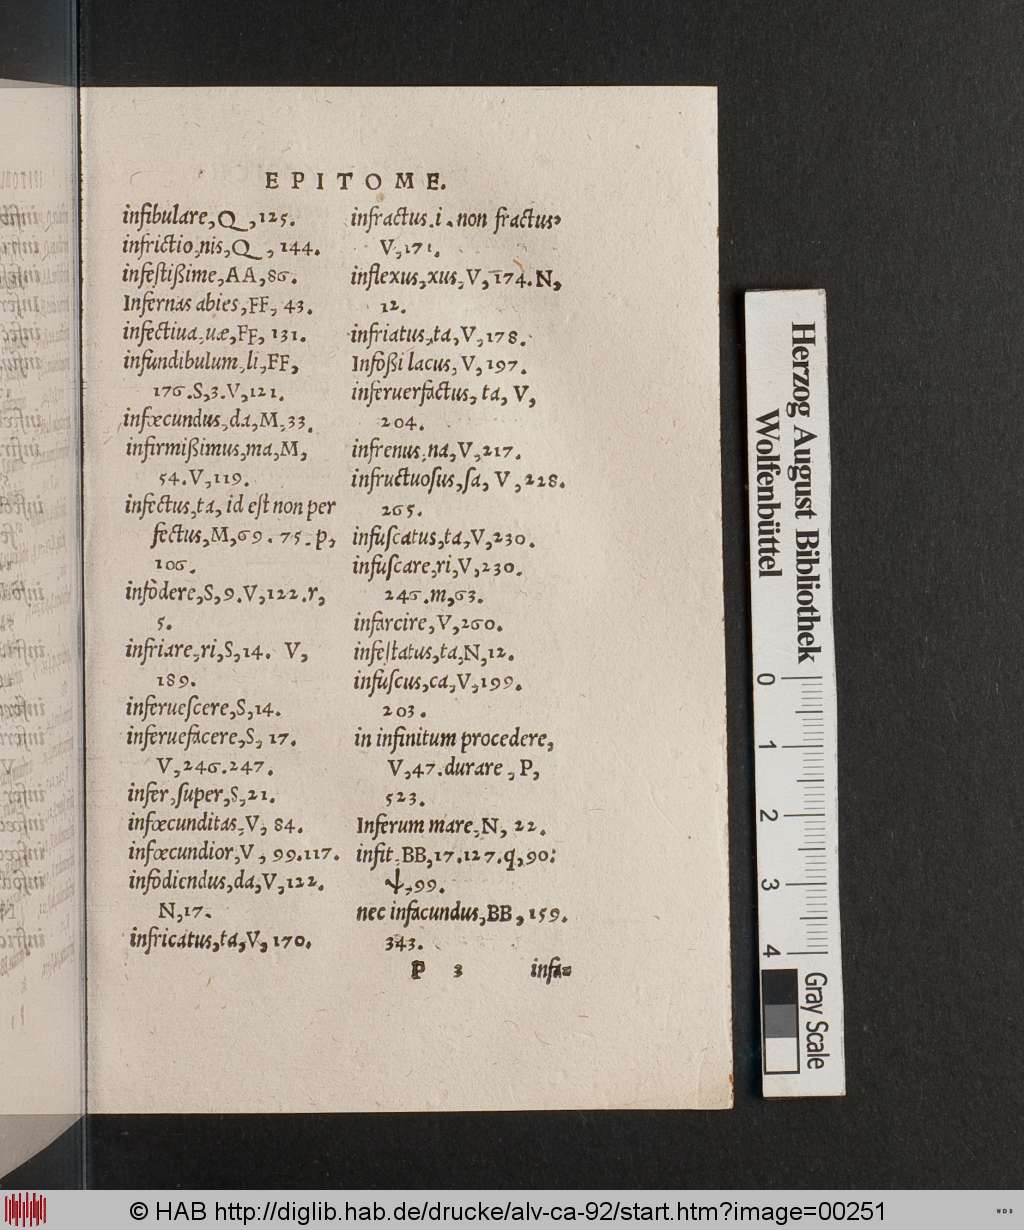 EPITOME.
infibulare, Q, 125.
infrictio, nis, Q, 144.
infestißime, AA, 86.
Infernas abies, FF, 43.
infectiua, uæ, FF, 131.
infundibulum, li, FF,
176. S, 3. V, 121.
infœcundus, da, M, 33.
infirmißimus, ma, M,
54. V, 119.
infectus, ta, id est non per
fectus, M, 69. 75. p,
106.
infodere, S, 9. V, 122. r,
5.
infriare, ri, S, 14. V,
189.
inferuescere, S, 14.
inferuefacere, S, 17.
V, 246. 247.
infer, super, S, 21.
infœcunditas, V, 84.
infœcundior, V, 99. 117.
infodiendus, da, V, 122.
N, 17.
infricatus, ta, V, 170.
infractus. i. non fractus,
V, 171.
inflexus, xus, V, 174. N,
12.
infriatus, ta, V, 178.
Infoßi lacus, V, 197.
inferuerfactus, ta, V,
204.
infrenus, na, V, 217.
infructuosus, sa, V, 228.
265.
infuscatus, ta, V, 230.
infuscare, ri, V, 230.
246. m, 63.
infarcire, V, 260.
infestatus, ta, N, 12.
infuscus, ca, V, 199.
203.
in infinitum procedere,
V, 47. durare, P,
523.
Inferum mare, N, 22.
infit, BB, 17. 127. q, 90:
99.
nec infacundus, BB, 159.
343.
P 3 infa=
Herzog August Bibliothek
Wolfenbüttel
0 1 2 3 4
Gray Scale
© HAB http://diglib.hab.de/drucke/alv-ca-92/start.htm?image=00251